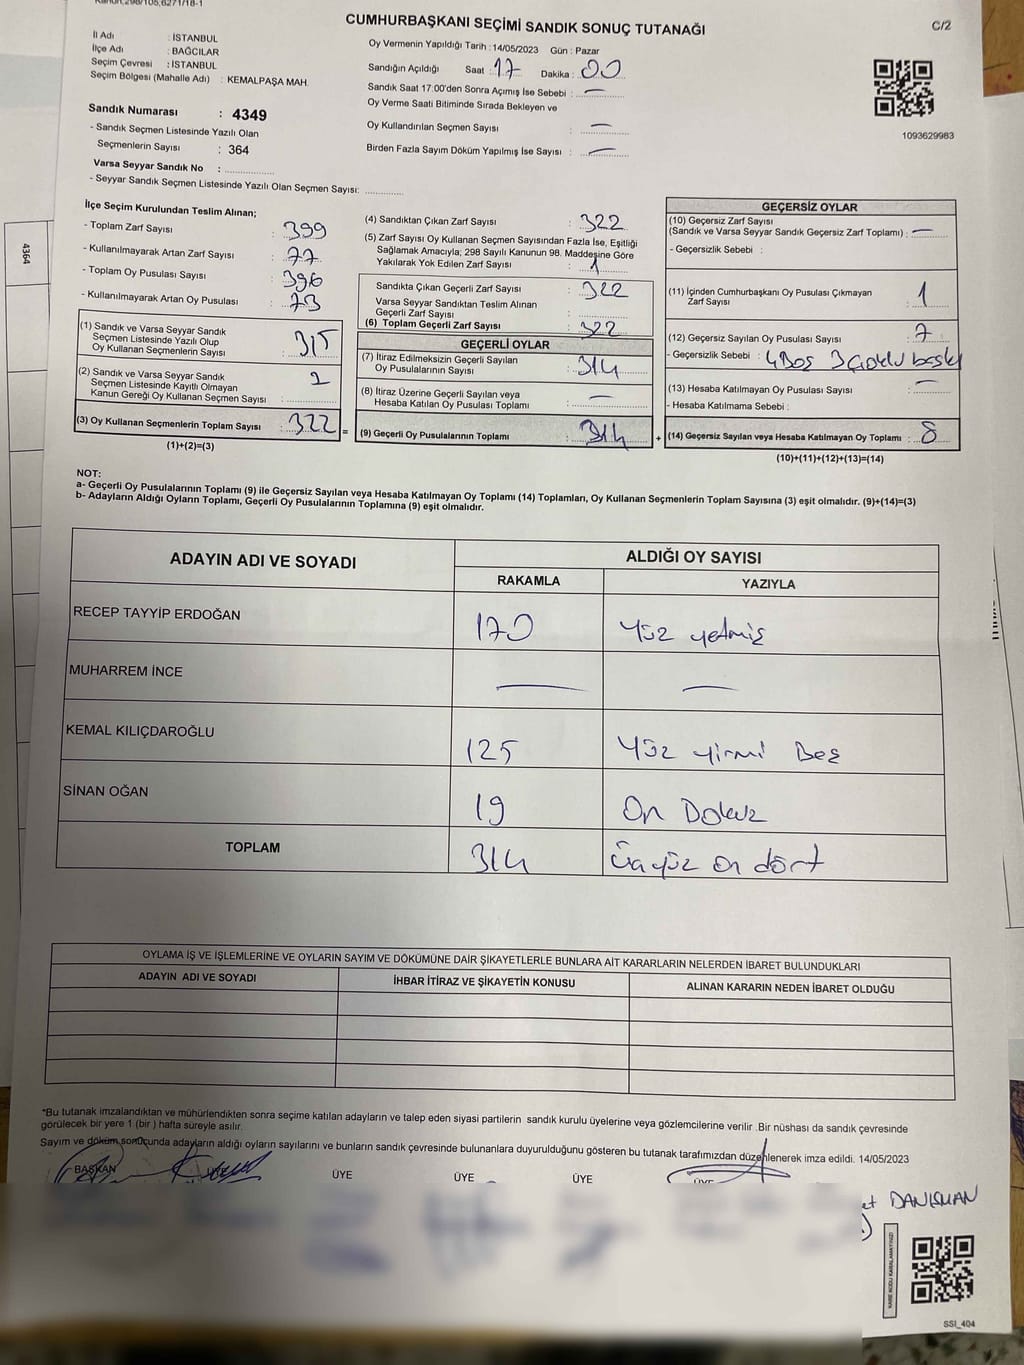 CUMHURBAŞKANI SEÇİMİ SANDIK SONUÇ TUTANAĞI
C/2
İl Adı : İSTANBUL
İlçe Adı : BAĞCILAR
Seçim Çevresi : İSTANBUL
Seçim Bölgesi (Mahalle Adı) : KEMALPAŞA MAH.
Oy Vermenin Yapıldığı Tarih : 14/05/2023 Gün : Pazar
Sandığın Açıldığı Saat : 17 Dakika : 00
Sandık Saat 17:00'den Sonra Açımış İse Sebebi : —
Oy Verme Saati Bitiminde Sırada Bekleyen ve
Oy Kullandırılan Seçmen Sayısı : —
Birden Fazla Sayım Döküm Yapılmış İse Sayısı : —
1093629983
Sandık Numarası : 4349
- Sandık Seçmen Listesinde Yazılı Olan
Seçmenlerin Sayısı : 364
Varsa Seyyar Sandık No :
- Seyyar Sandık Seçmen Listesinde Yazılı Olan Seçmen Sayısı:
4364
İlçe Seçim Kurulundan Teslim Alınan;
- Toplam Zarf Sayısı : 399
- Kullanılmayarak Artan Zarf Sayısı : 77
- Toplam Oy Pusulası Sayısı : 396
- Kullanılmayarak Artan Oy Pusulası : 73
(1) Sandık ve Varsa Seyyar Sandık
Seçmen Listesinde Yazılı Olup
Oy Kullanan Seçmenlerin Sayısı :
(2) Sandık ve Varsa Seyyar Sandık
Seçmen Listesinde Kayıtlı Olmayan
Kanun Gereği Oy Kullanan Seçmen Sayısı :
(3) Oy Kullanan Seçmenlerin Toplam Sayısı : 322 =
(1)+(2)=(3)
(4) Sandıktan Çıkan Zarf Sayısı : 322
(5) Zarf Sayısı Oy Kullanan Seçmen Sayısından Fazla İse, Eşitliği
Sağlamak Amacıyla; 298 Sayılı Kanunun 98. Maddesine Göre
Yakılarak Yok Edilen Zarf Sayısı : 1
Sandıkta Çıkan Geçerli Zarf Sayısı : 322
Varsa Seyyar Sandıktan Teslim Alınan
Geçerli Zarf Sayısı :
(6) Toplam Geçerli Zarf Sayısı : 322
GEÇERLİ OYLAR
(7) İtiraz Edilmeksizin Geçerli Sayılan
Oy Pusulalarının Sayısı : 314
(8) İtiraz Üzerine Geçerli Sayılan veya
Hesaba Katılan Oy Pusulası Toplamı : —
(9) Geçerli Oy Pusulalarının Toplamı : 314 +
GEÇERSİZ OYLAR
(10) Geçersiz Zarf Sayısı
(Sandık ve Varsa Seyyar Sandık Geçersiz Zarf Toplamı) : —
- Geçersizlik Sebebi :
(11) İçinden Cumhurbaşkanı Oy Pusulası Çıkmayan
Zarf Sayısı : 1
(12) Geçersiz Sayılan Oy Pusulası Sayısı : 7
- Geçersizlik Sebebi : 4 Boş 3 çoklu baskı
(13) Hesaba Katılmayan Oy Pusulası Sayısı : —
- Hesaba Katılmama Sebebi :
(14) Geçersiz Sayılan veya Hesaba Katılmayan Oy Toplamı : 8
(10)+(11)+(12)+(13)=(14)
NOT:
a- Geçerli Oy Pusulalarının Toplamı (9) ile Geçersiz Sayılan veya Hesaba Katılmayan Oy Toplamı (14) Toplamları, Oy Kullanan Seçmenlerin Toplam Sayısına (3) eşit olmalıdır. (9)+(14)=(3)
b- Adayların Aldığı Oyların Toplamı, Geçerli Oy Pusulalarının Toplamına (9) eşit olmalıdır.
ADAYIN ADI VE SOYADI
ALDIĞI OY SAYISI
RAKAMLA YAZIYLA
RECEP TAYYİP ERDOĞAN 170 Yüz yetmiş
MUHARREM İNCE — —
KEMAL KILIÇDAROĞLU 125 Yüz yirmi Beş
SİNAN OĞAN 19 On Dokuz
TOPLAM 314 Üçyüz on dört
OYLAMA İŞ VE İŞLEMLERİNE VE OYLARIN SAYIM VE DÖKÜMÜNE DAİR ŞİKAYETLERLE BUNLARA AİT KARARLARIN NELERDEN İBARET BULUNDUKLARI
ADAYIN ADI VE SOYADI İHBAR İTİRAZ VE ŞİKAYETİN KONUSU ALINAN KARARIN NEDEN İBARET OLDUĞU
*Bu tutanak imzalandıktan ve mühürlendikten sonra seçime katılan adayların ve talep eden siyasi partilerin sandık kurulu üyelerine veya gözlemcilerine verilir .Bir nüshası da sandık çevresinde
görülecek bir yere 1 (bir ) hafta süreyle asılır.
Sayım ve döküm sonucunda adayların aldığı oyların sayılarını ve bunların sandık çevresinde bulunanlara duyurulduğunu gösteren bu tutanak tarafımızdan düzenlenerek imza edildi. 14/05/2023
BAŞKAN ÜYE ÜYE ÜYE ÜYE ÜYE
DANIŞMAN
KARE KODU KARALAMAYINIZ!
SSI_404